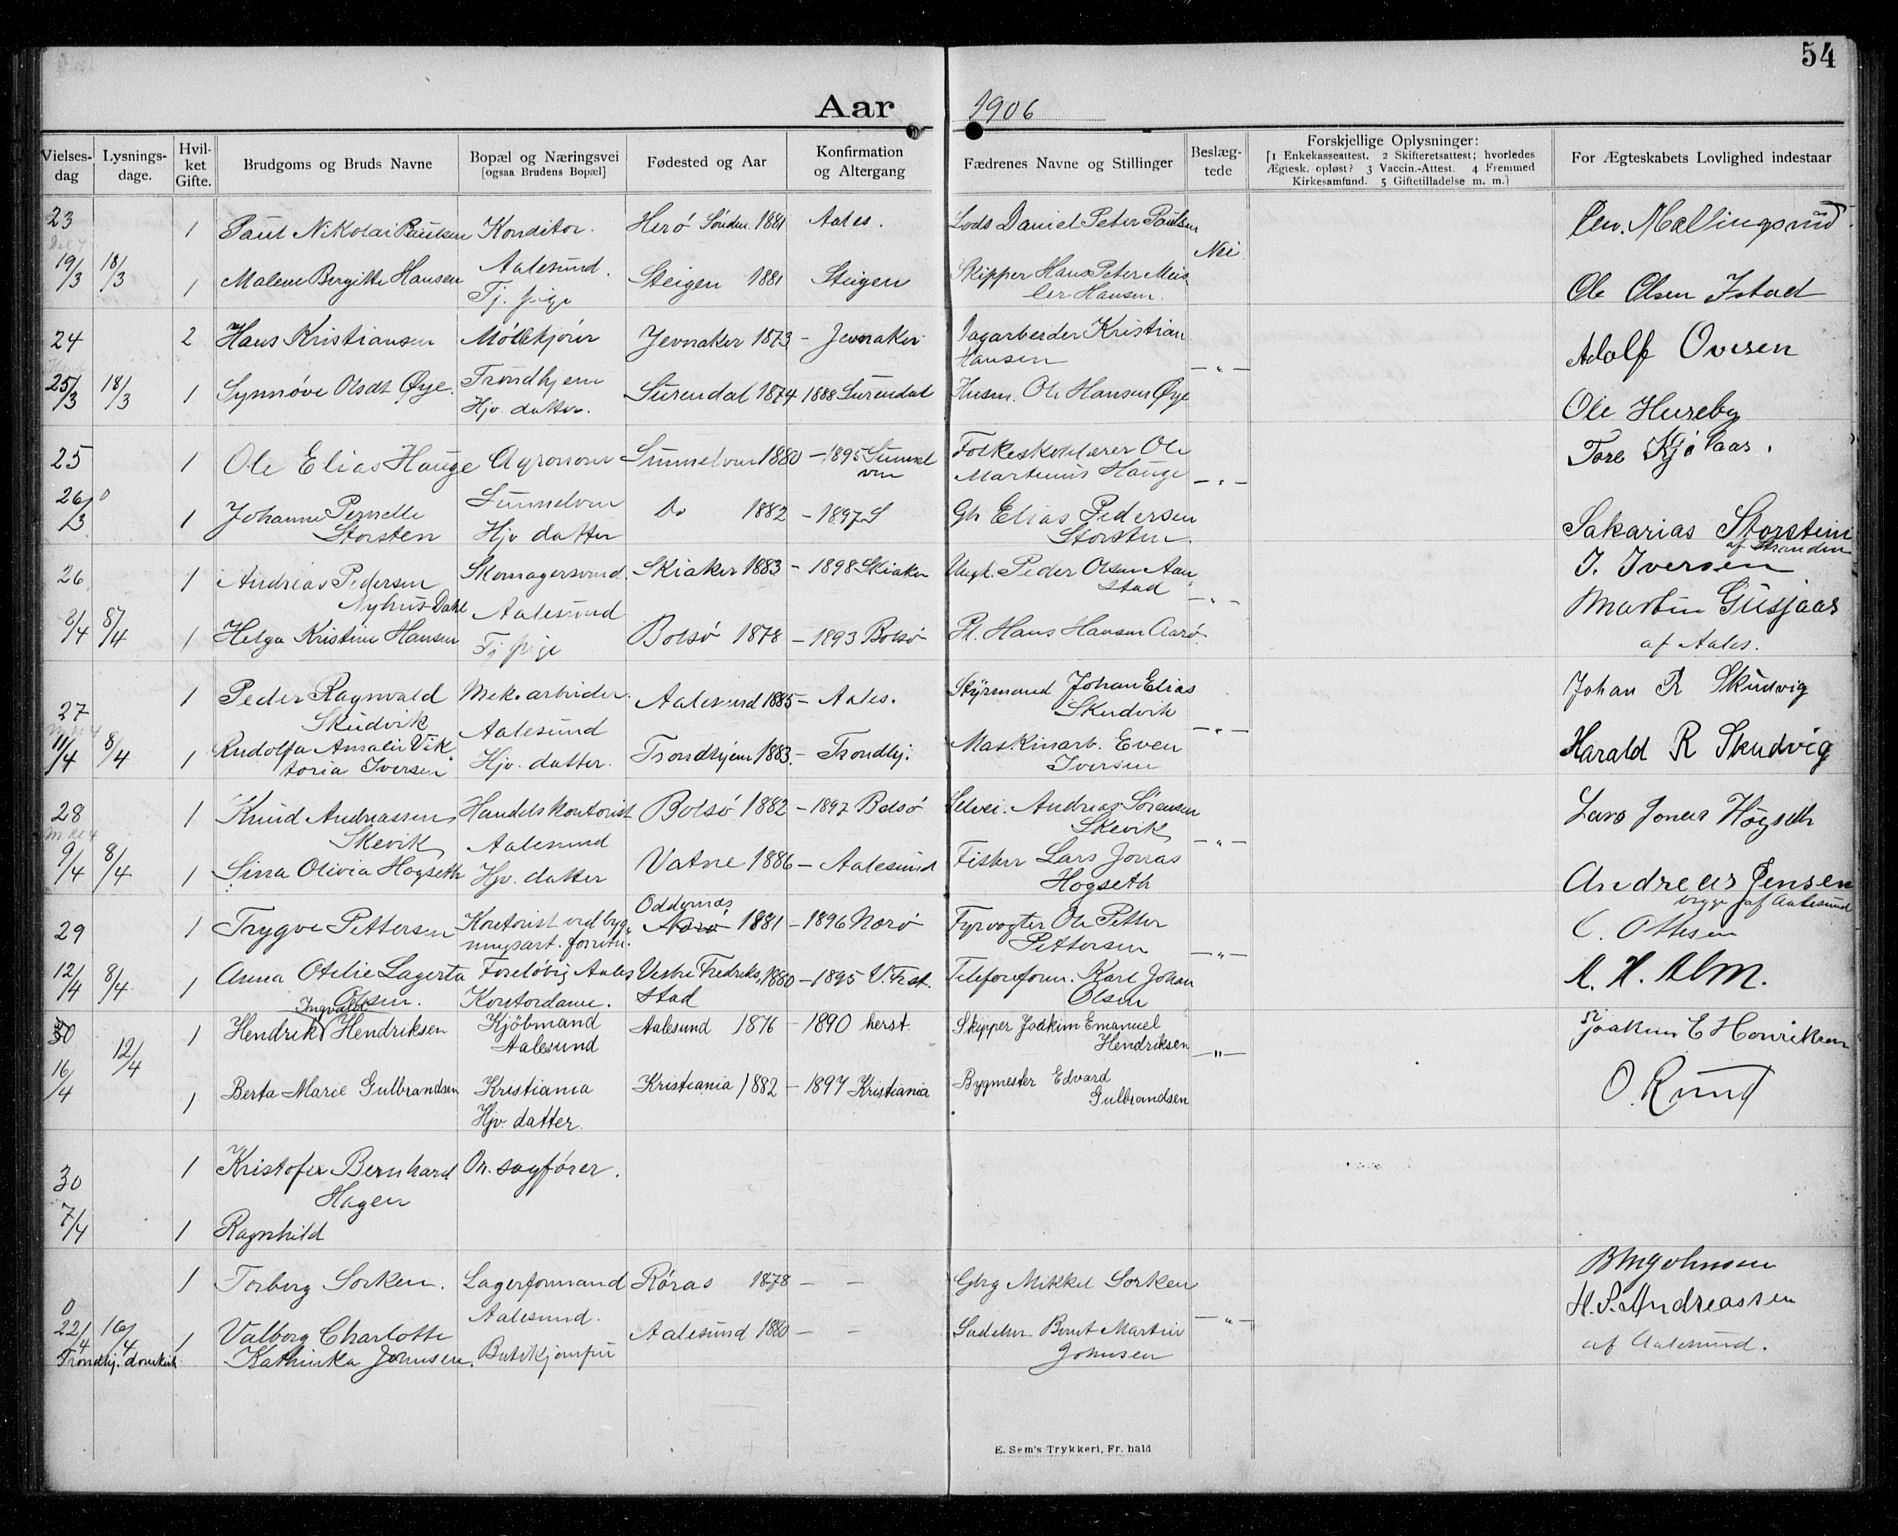 54
Aar 1906
Vielses-dag
Lysnings-dage.
Hvil-ket Gifte.
Brudgoms og Bruds Navne
Bopæl og Næringsvei [ogsaa Brudens Bopæl]
Fødested og Aar
Konfirmation og Altergang
Fædrenes Navne og Stillinger
Beslæg-tede
Forskjellige Oplysninger: [1 Enkekasseattest. 2 Skifteretsattest; hvorledes Ægtesk. opløst? 3 Vaccin.-Attest. 4 Fremmed Kirkesamfund. 5 Giftetilladelse m. m.]
For Ægteskabets Lovlighed indestaar
23 1 Paul Nikolai Paulsen Konditor. Herø Sönden. 1881 Aales. Lods Daniel Peter Paulsen
Aalesund. Nei
19/3 18/3 1 Malene Bergitte Hansen Tj. pige Steigen 1881 Steigen Skipper Hans Peter Meis-
ler Hansen. Ole Olsen Istad
24 2 Hans Kristiansen Mølkjører Jevnaker 1873 - Jevnaker Dagarbeider Kristian
Hansen -"- Adolf Ovesen
25/3 18/3 1 Synnøve Olsdt Øye. Trondhjem Surendal 1874 1888 Surendal Husm. Ole Hansen Øye
Hjv. datter. Ole Huseby
25 1 Ole Elias Hauge Agronom Sunnelven 1880 - 1895 Sunnel
ven Folkeskolelærer Ole
Martinus Hauge -"- Tore Kjölaas.
26/3 1 Johanne Pernelle Sunnelven Do 1882 - 1897 S Gbr Elias Pedersen
Storsten Hjv datter Storsten. Sakarias Storstein
af Stranden
26 1 Andreas Pedersen Skomagersvend. Skiaker 1883 - 1898 Skiaker Ungk. Peder Olsen Aan
stad -"- I. Iversen
Nyhus-Dahl Aalesund Martin Gusjaas
8/4 8/4 1 Helga Kristine Hansen Tj pige Bolsø 1878 - 1893 Bolsø Pl. Hans Hansen Aarö
af Aales.
27 1 Peder Ragnvald Mek. arbeider. Aalesund 1885 - Aales. Styrmand Johan Elias
Skudvik Aalesund Skudvik -"- Johan R Skudvig
11/4 8/4 1 Rudolfa Amalie Vik
toria Iversen Hjv. datter. Trondhjem 1883. - Trondhj. Maskinarb. Even
Iversen Harald R Skudvig
28 1 Knud Andreassen Handelskontorist Bolsø 1882 - 1897 Bolsø Selvei. Andreas Sörensen
Skevik Aalesund Skevik -"- Lars Jonas Högseth
9/4 8/4 1 Sina Olivia Hogseth Hjv. datter Vatne 1886 - Aalesund Fisker Lars Jonas
Hogseth Andreas Jensen
brygge af Aalesund
29 1 Trygve Pettersen Kontorist ved byg
ningsart. forretn. Oddernæs
Nærö 1881 - 1896 Nærö Fyrvogter Ole Petter
Pettersen -"- C. Ottesen
12/4 8/4 1 Anna Otelie Lagerta Foreløbig Aales Vestre Fredriks, 1880 - 1895 V. Frst. Telefonform. Karl Johan
Olsen. Kontordame. stad Olsen A. H. Alm.
Ingvald
30 1 Hendrik Hendriksen Kjöbmand Aalesund 1876 - 1890 herst. Skipper Joakim Emanuel
Aalesund Hendriksen -"- Joakim E Henriksen
16/4 12/4 1 Berta Marie Gulbrandsen Kristiania Kristiania 1882 - 1897 Kristiania Bygmester Edvard
Hjv. datter. Gulbrandsen
30 1 Kristofer Bernhard Or. sagfører.
Hagen
7/4 1 Ragnhild
1 Torberg Sorken. Lagerformand Røras 1878 - - Gbrg Mikkel Sorken
Aalesund. -"- H. P. Andreassen
0 22/4 16/4 1 Valborg Charlotte Aalesund 1880 - - Sadelm. Bernt Martin
Trondhj. domkirk Kathinka Johnsen. Butikjomfru Johnsen af Aalesund.
E. Sem's Trykkeri, Fr.hald